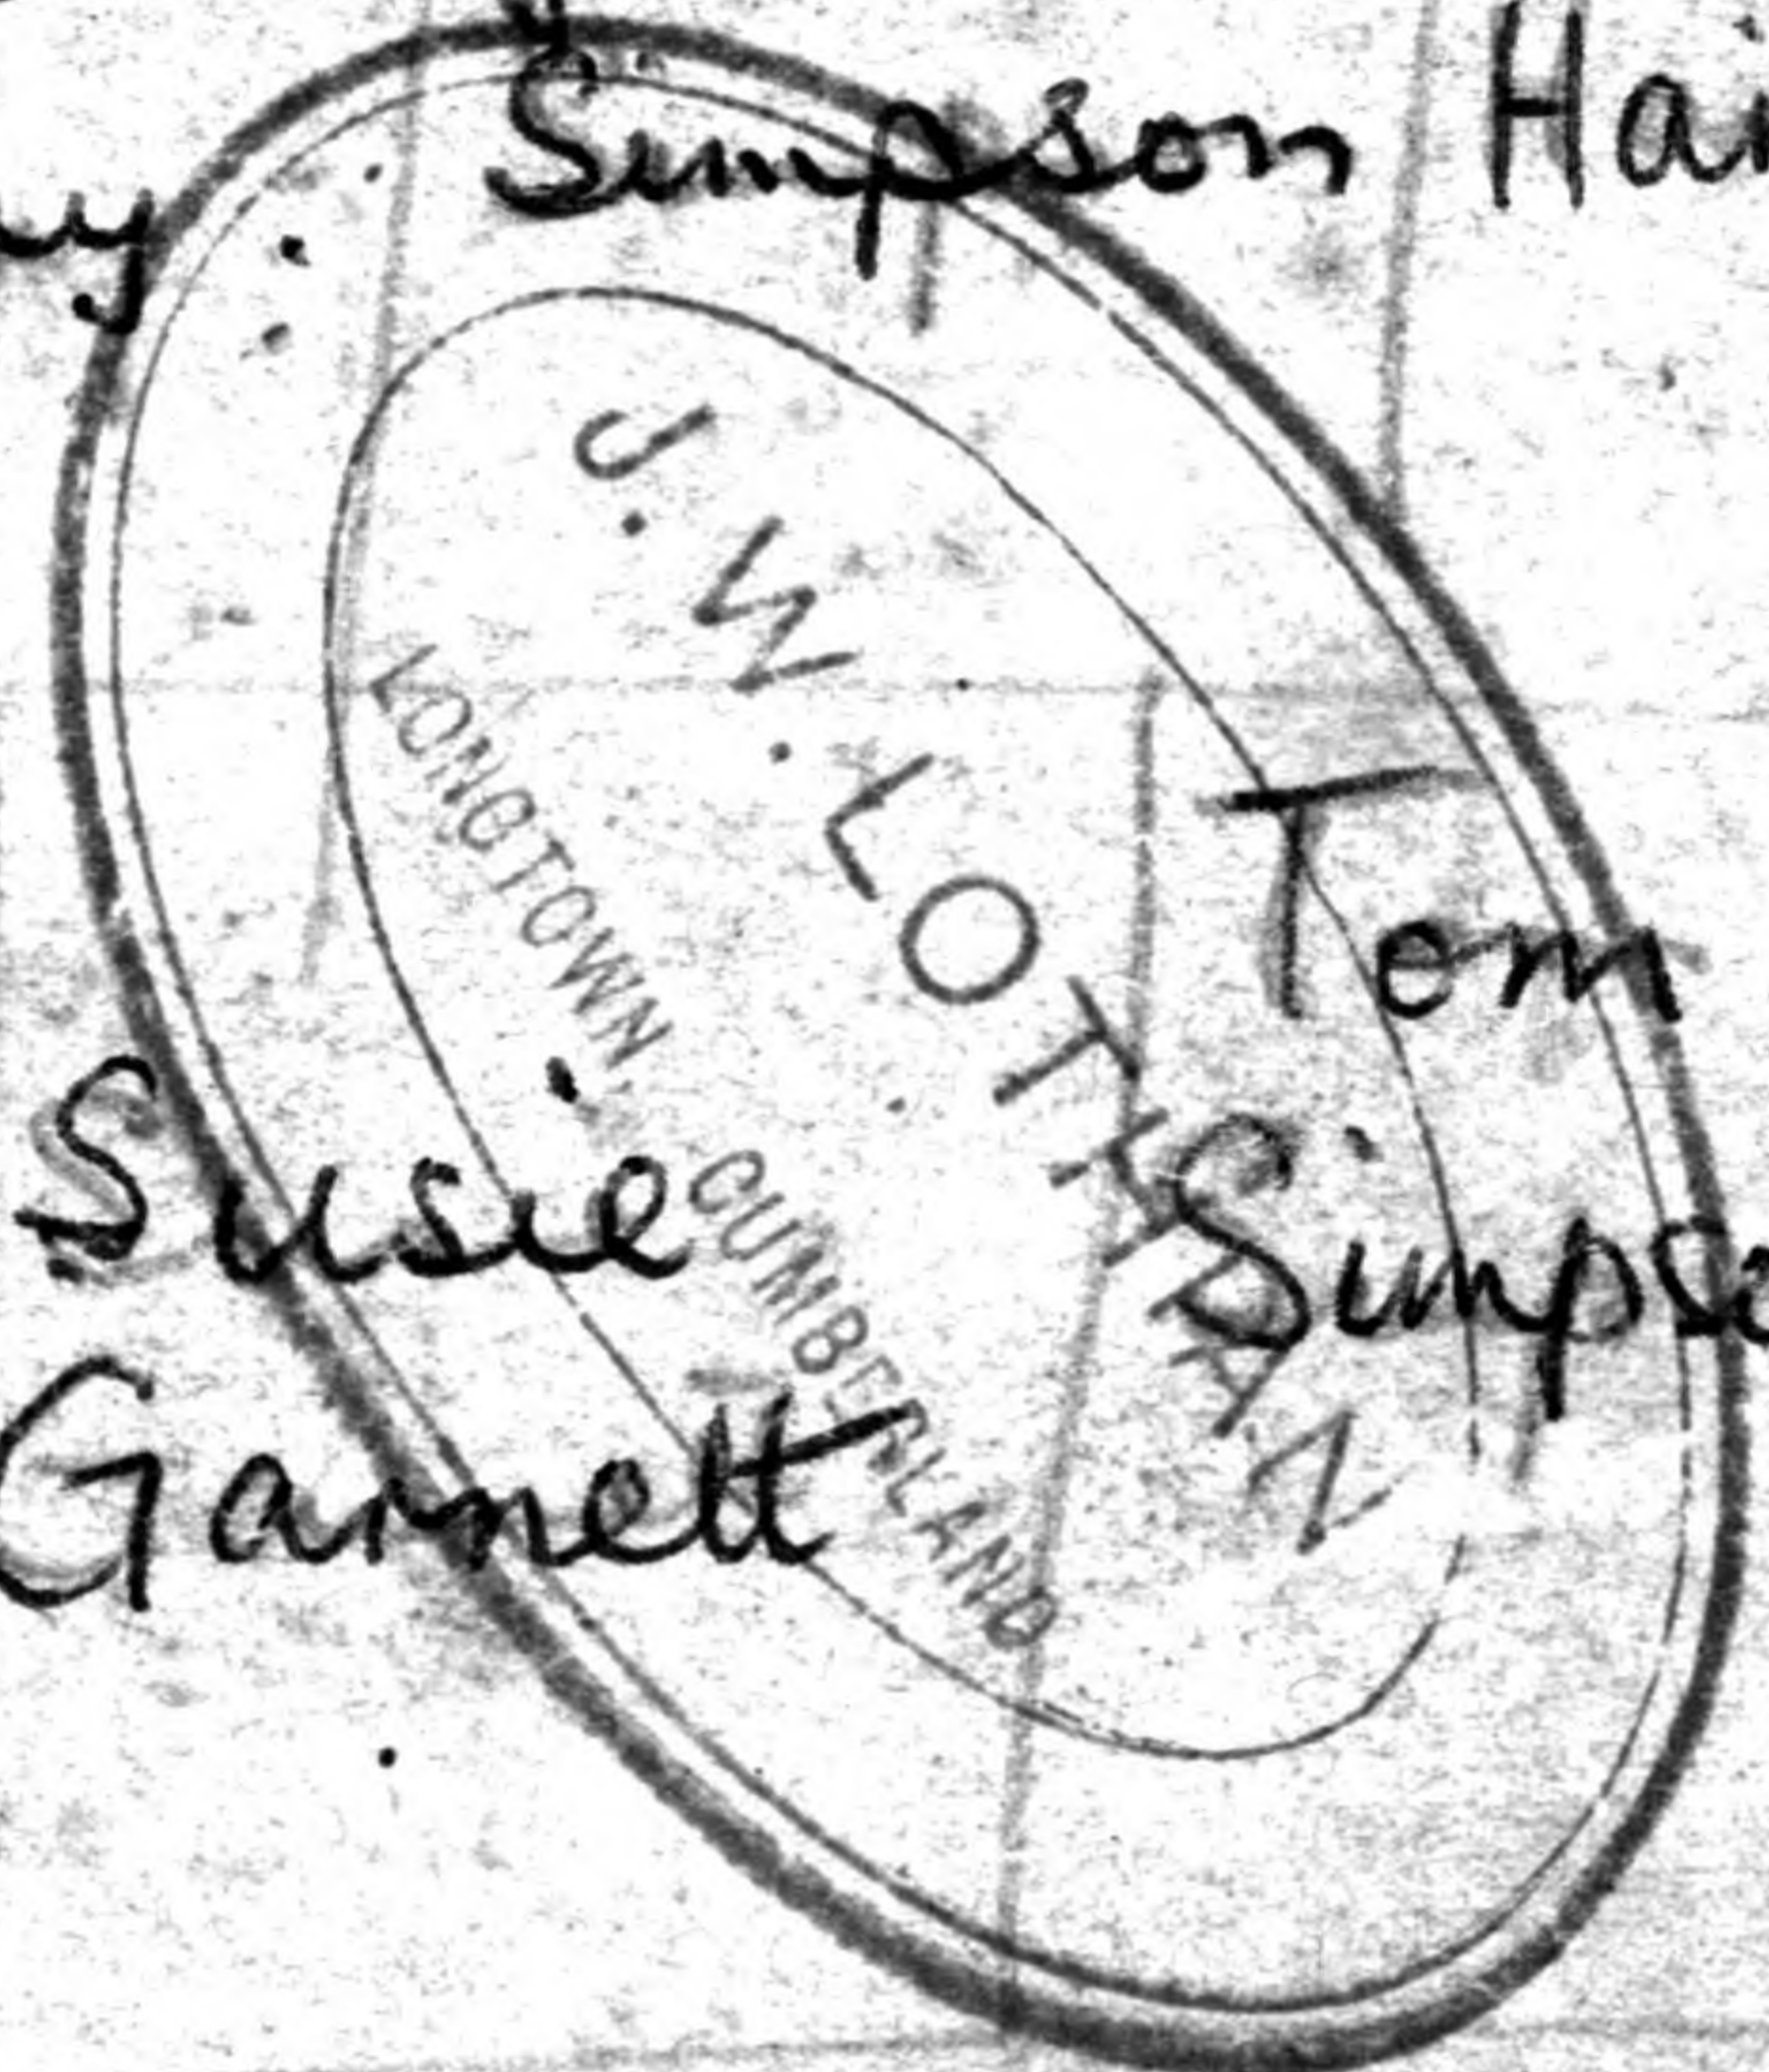 Simpson Hai
uy
J. W. LOTHIAN
LONGTOWN, CUMBERLAND
Tom
Simpso
Susie
Garnett